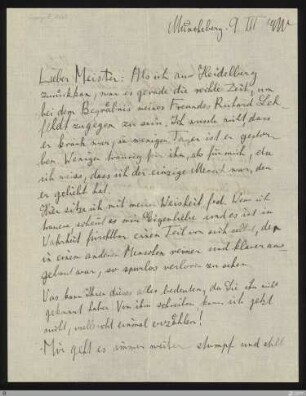 Müncheberg. 9. III
Lieber Meister: Als ich aus Heidelberg
zurückkam, war es gerade die rechte Zeit, um
bei dem Begräbnis meines Freundes Richard
zugegen zu sein. Ich wusste nicht dass
er krank war, in wenigen Tagen ist er gestor-
ben. Weniger traurig für ihn, als für mich, da
ich weiss, dass ich der einzige Mensch war, den
er geliebt hat.
Hier sitze ich mit meiner Weisheit
scheint es nur Eigenliebe und es ist in
Wahrheit furchtbar einen Teil von sich selbst, der
in einem anderen Menschen wärmer und klarer aus-
gebaut war, so spurlos verloren zu sehen.
Was kann Ihnen dieses alles bedeuten, da Sie ihn nicht
gekannt haben. Von ihm schreiben kann ich jetzt
nicht, vielleicht einmal erzählen!
Mir geht es immer weiter stumpf und